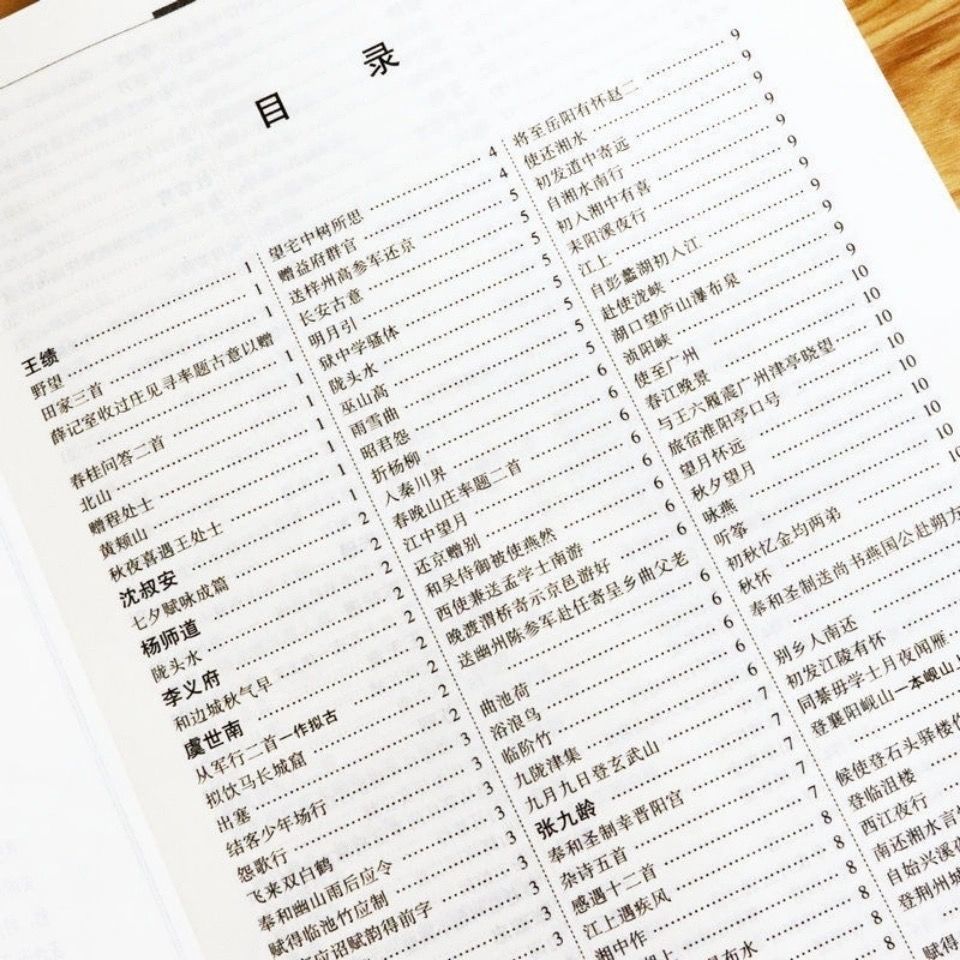 目录
王绩 1
野望 1
田家三首 1
薛记室收过庄见寻率题古意以赠
1
春桂问答二首 1
北山 1
赠程处士 1
黄颊山 1
秋夜喜遇王处士 1
沈叔安 1
七夕赋咏成篇 2
杨师道 2
陇头水 2
李义府 2
和边城秋气早 2
虞世南 2
从军行二首一作拟古 2
拟饮马长城窟 2
出塞 2
结客少年场行 3
怨歌行 3
飞来双白鹤 3
奉和幽山雨后应令 3
赋得临池竹应制 3
应诏赋韵得前字 3
望宅中树所思 4
赠益府群官 4
送梓州高参军还京 5
长安古意 5
明月引 5
狱中学骚体 5
陇头水 5
巫山高 5
雨雪曲 5
昭君怨 5
折杨柳 6
入秦川界 6
春晚山庄率题二首 6
江中望月 6
还京赠别 6
和吴侍御被使燕然
西使兼送孟学士南游
晚渡渭桥寄示京邑游好
送幽州陈参军赴任寄呈乡曲父老
6
曲池荷 6
浴浪鸟 6
临阶竹 6
九陇津集 6
九月九日登玄武山 7
张九龄 7
奉和圣制幸晋阳宫 7
杂诗五首 7
感遇十二首 8
江上遇疾风 8
湘中作 8
将至岳阳有怀赵二 9
使还湘水 9
初发道中寄远 9
自湘水南行 9
初入湘中有喜 9
耒阳溪夜行 9
江上 9
自彭蠡湖初入江 9
赴使泷峡 9
湖口望庐山瀑布泉 9
浈阳峡 10
使至广州 10
春江晚景 10
与王六履震广州津亭晓望 10
旅宿淮阳亭口号 10
望月怀远 10
秋夕望月 10
咏燕 10
听筝
初秋忆金均两弟
秋怀
奉和圣制送尚书燕国公赴朔方
别乡人南还
初发江陵有怀
同綦毋学士月夜闻雁
登襄阳岘山一本岘山上
候使登石头驿楼作
登临沮楼
西江夜行
南还湘水言
自始兴溪夜
登荆州城